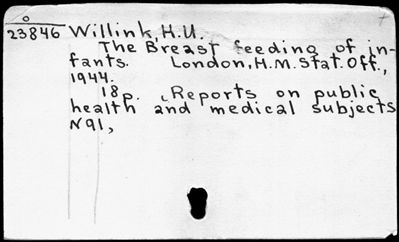 o
23846 Willink, H.U.
The Breast feeding of in-
fants. London, H.M. Stat. Off.,
1944.
18p. (Reports on public
health and medical subjects
N91,